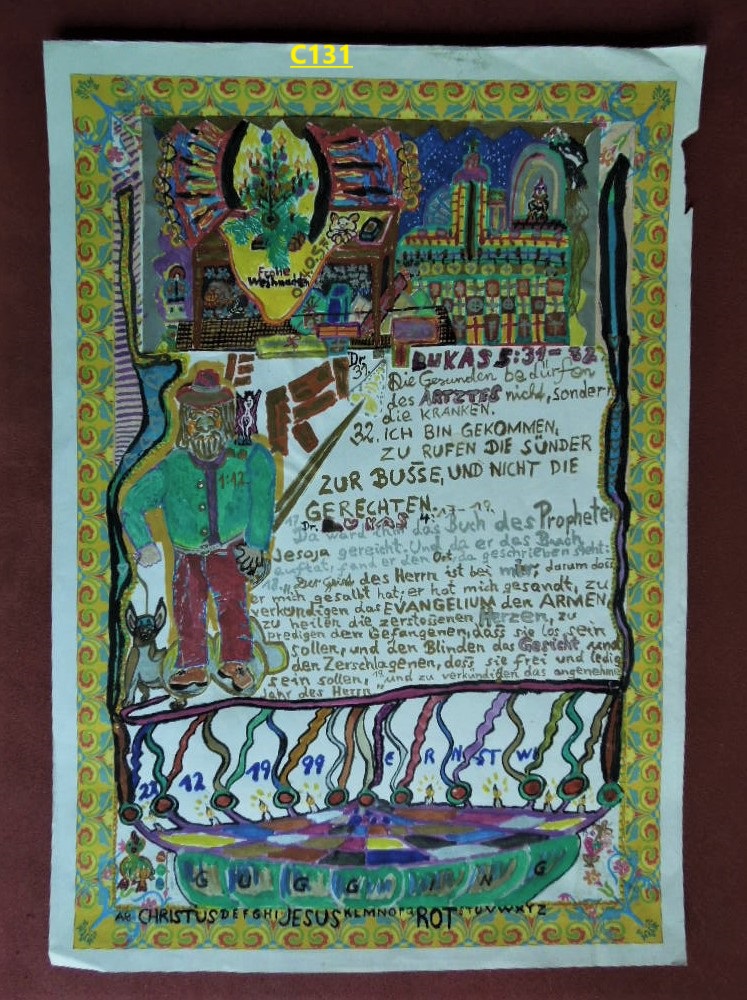 C131
Frohe
Weihnachten
LUKAS 5:31-32
Dr.
31.
Die Gesunden bedürfen
des ARTZTES nicht, sondern
die KRANKEN.
32. ICH BIN GEKOMMEN,
ZU RUFEN DIE SÜNDER
ZUR BUSSE, UND NICHT DIE
GERECHTEN.
1:12
Dr. LUKAS 4: 17-19.
Da ward ihm das Buch des Propheten
Jesaja gereicht. Und da er das Buch
auftat, fand er den Ort, da geschrieben steht:
18. "Der Geist des Herrn ist bei mir, darum dass
er mich gesalbt hat; er hat mich gesandt, zu
verkündigen das EVANGELIUM den ARMEN,
zu heilen die zerstoßenen Herzen, zu
predigen den Gefangenen, dass sie los sein
sollen, und den Blinden das Gesicht und
den Zerschlagenen, dass sie frei und ledig
sein sollen, 19 und zu verkündigen das angenehme
Jahr des Herrn
22 12 1999 ERNST W
GUGGING
AB CHRISTUS DEFGHI JESUS KLMNOP ROT STUVWXYZ